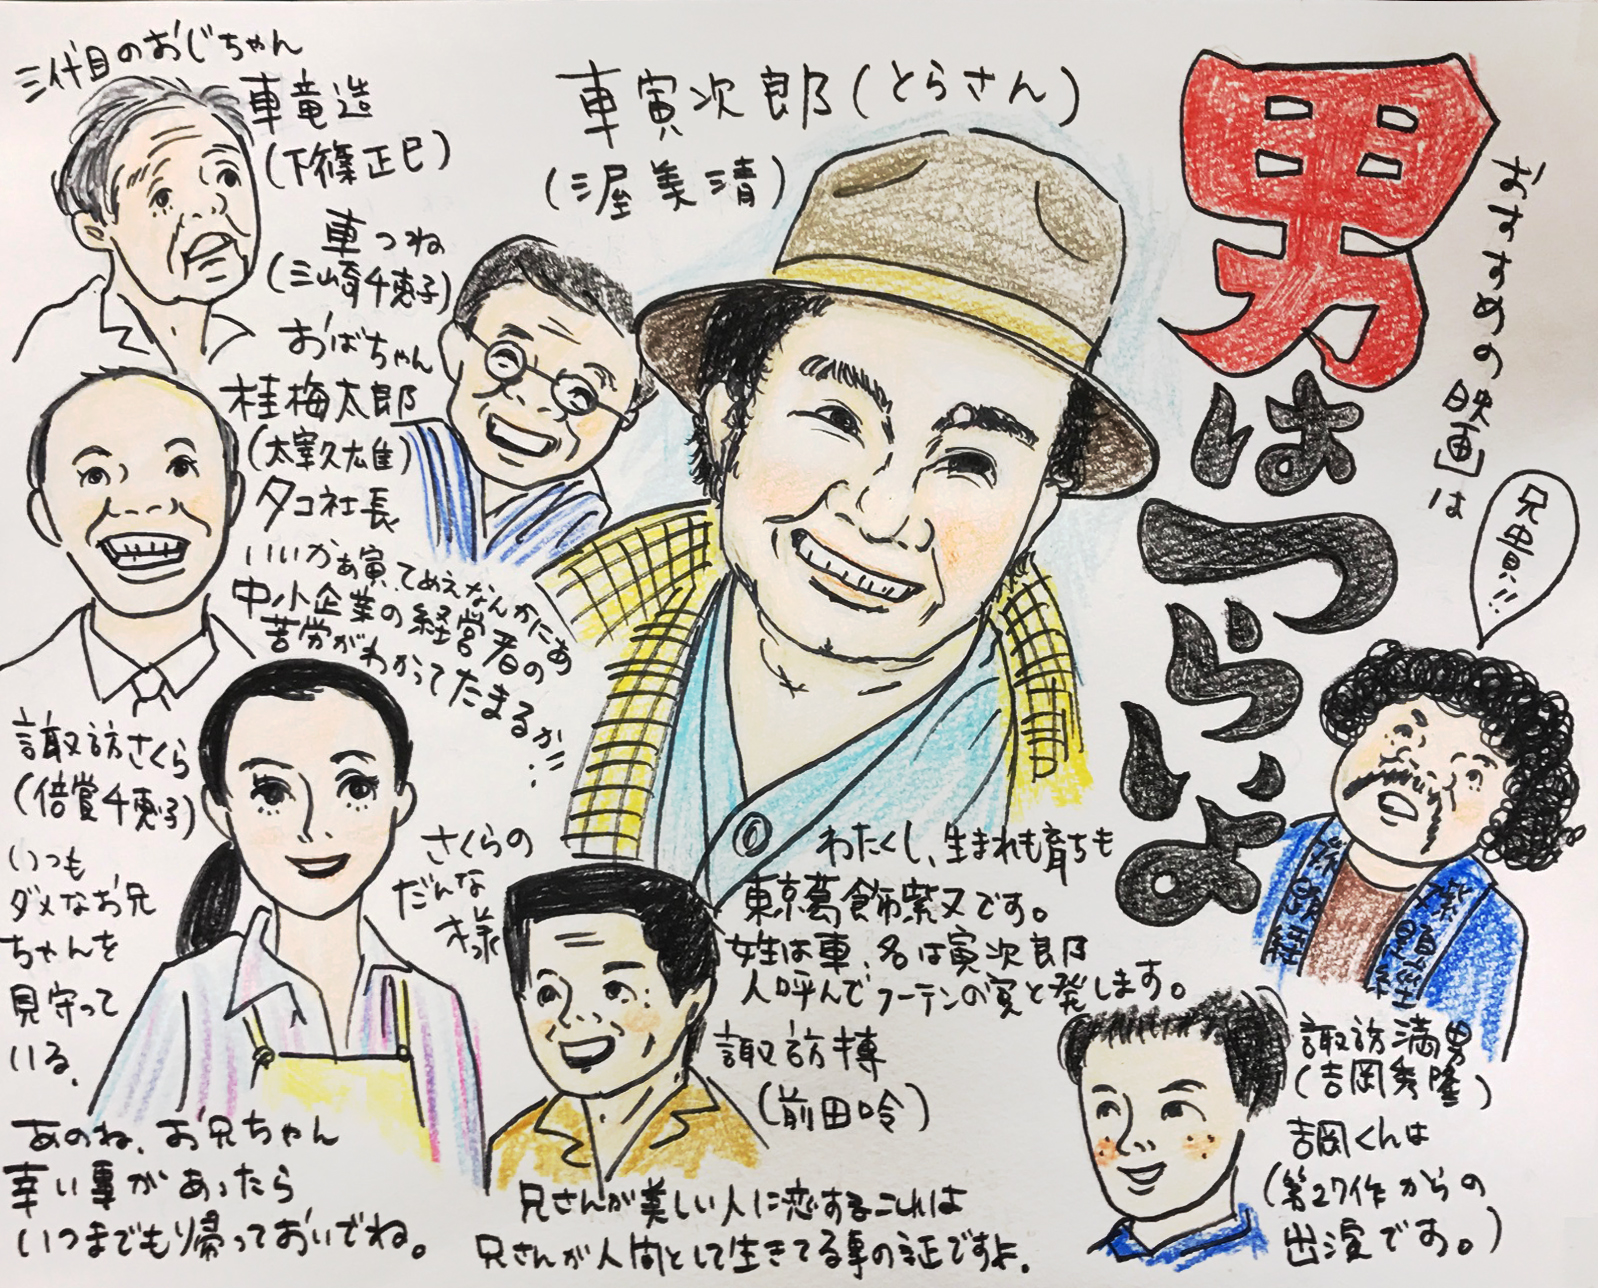 三代目のおじちゃん
車竜造
(下篠正巳)
車つね
(三崎千恵子)
おばちゃん
桂梅太郎
(太宰久雄)
タコ社長
いいかぁ寅、てめえなんかにあ
中小企業の経営者の
苦労がわかってたまるか!!
車寅次郎(とらさん)
(渥美清)
おすすめの映画は
男はつらいよ
兄貴!!
題経
諏訪さくら
(倍賞千恵子)
いつも
ダメなお兄
ちゃんを
見守って
いる。
あのね、お兄ちゃん
辛い事があったら
いつまでもり帰っておいでね。
さくらの
だんな
様
わたくし、生まれも育ちも
東京葛飾柴又です。
姓は車、名は寅次郎
人呼んでフーテンの寅と発します。
諏訪博
(前田吟)
兄さんが美しい人に恋するこれは
兄さんが人間として生きてる事の証ですよ。
諏訪満男
(吉岡秀隆)
吉岡くんは
(第27作からの
出演です。)